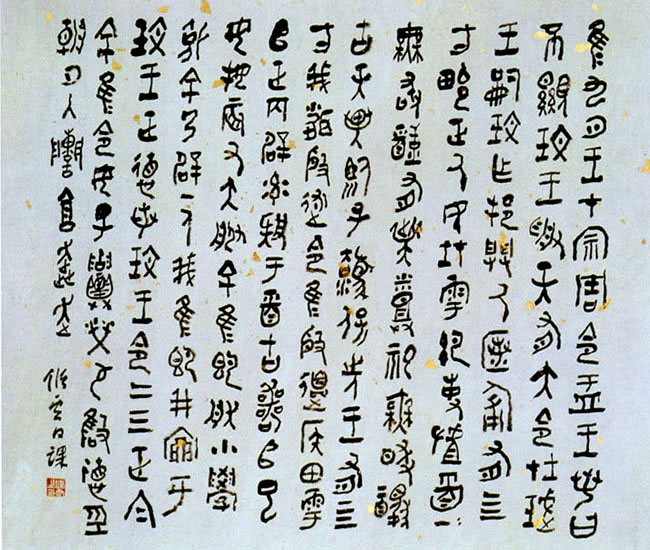 隹九月王才宗周令盂王若曰
不顯玟王受天有大令在珷
王嗣玟乍邦闢厥匿匍有四
方畯正厥民在雩御事䖒酉
無敢酖有祡烝祀無敢醻
古天異臨子灋保先王有四
方我聞殷述令隹殷邊侯田雩
正百辟率肄于酉古喪師已
女妹辰有大服余隹即朕小學
余乃辟一人我隹即井廩于
玟王正德若玟王令二三正今
余隹令女盂召榮敬雍德巠
朝夕入讕享奔走
日課